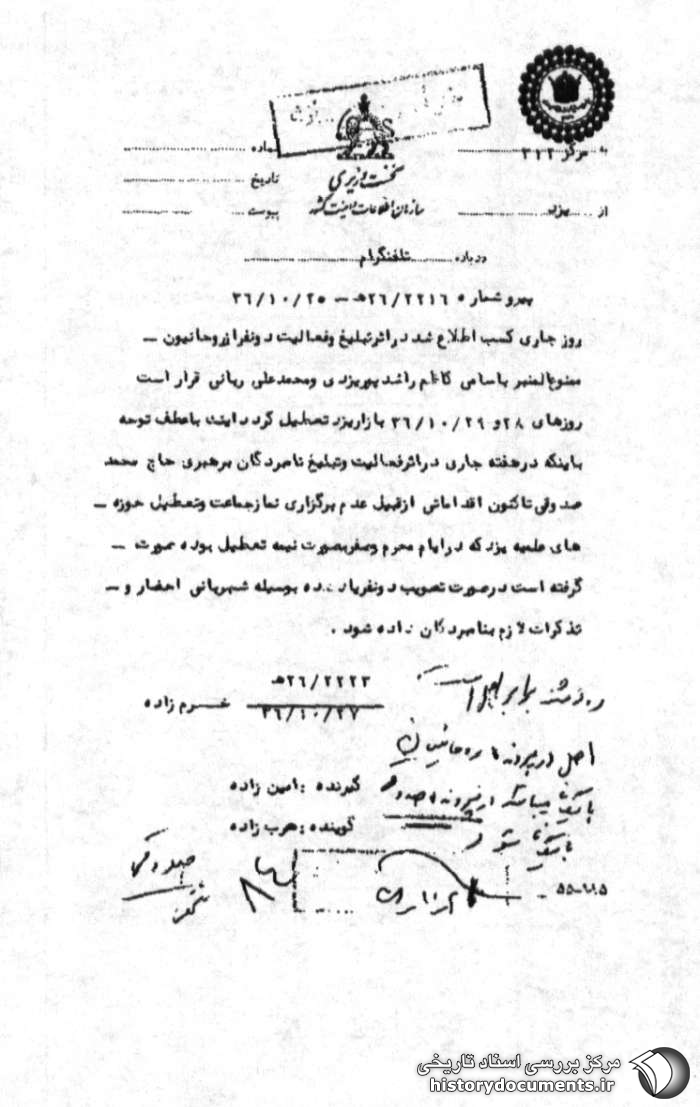 به مرکز ۳۱۲ شماره
نخست وزیری تاریخ
از یزد سازمان اطلاعات و امنیت کشور پیوست
درباره تلفنگرام
پیرو شماره ۲۶/۲۲۱۶ه‍ـ ۳۶/۱۰/۲۵
روز جاری کسب اطلاع شد در اثر تبلیغ و فعالیت دو نفر از روحانیون ــ
ممنوع‌المنبر باسامی کاظم راشد پوریزدی و محمدعلی ربانی قرار است
روزهای ۲۸ و ۳۶/۱۰/۲۹ بازار یزد تعطیل گردد اینک با عطف توجه
باینکه در هفته جاری در اثر فعالیت و تبلیغ نامبردگان برهبری حاج محمد
صدوقی تاکنون اقداماتی از قبیل عدم برگزاری نماز جماعت و تعطیل حوزه ــ
های علمیه یزد که در ایام محرم و صفر بصورت نیمه تعطیل بوده صورت ــ
گرفته است در صورت تصویب دو نفر یاد شده بوسیله شهربانی احضار و ــ
تذکرات لازم بنامبردگان داده شود .
۲۶/۲۲۲۳ه‍ـ
۳۶/۱۰/۲۷ خرم زاده
اصل در پرونده روحانیون
گیرنده : امین زاده
گوینده : عرب زاده
بایگانی شود
مرکز بررسی اسناد تاریخی
historydocuments.ir